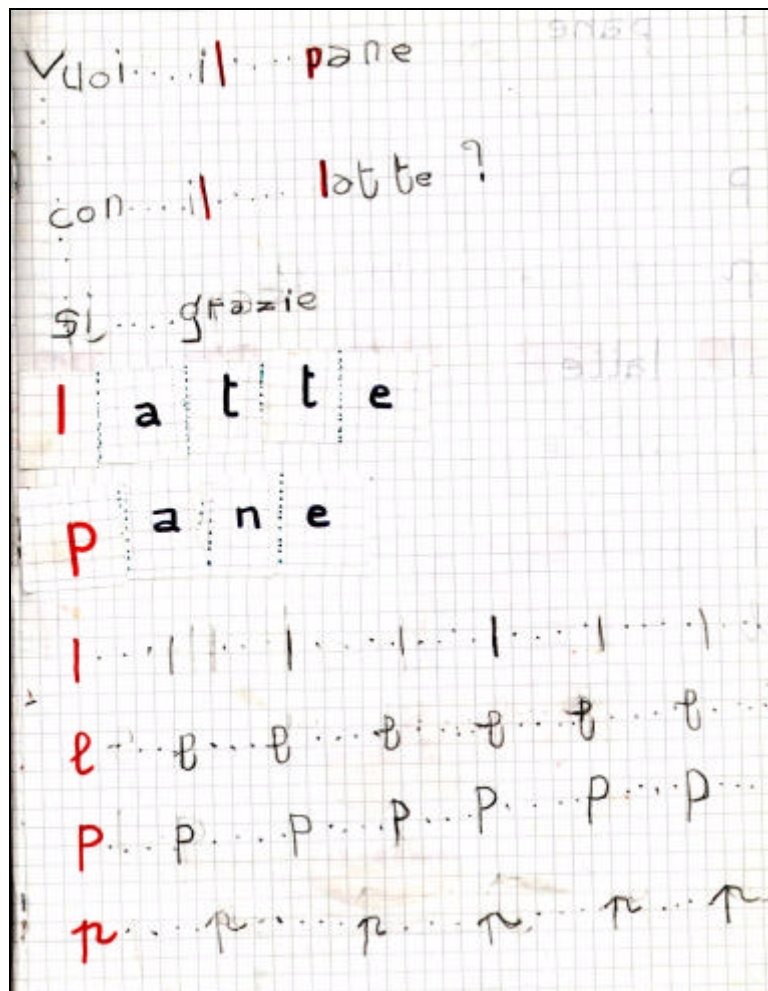 Vuoi....il....pane
con....il.... latte ?
si....grazie
l a t t e
p a n e
l...l...l...l...l...l...l
l...l...l...l...l...l...l
p...p...p...p...p...p...p
p...p...p...p...p...p